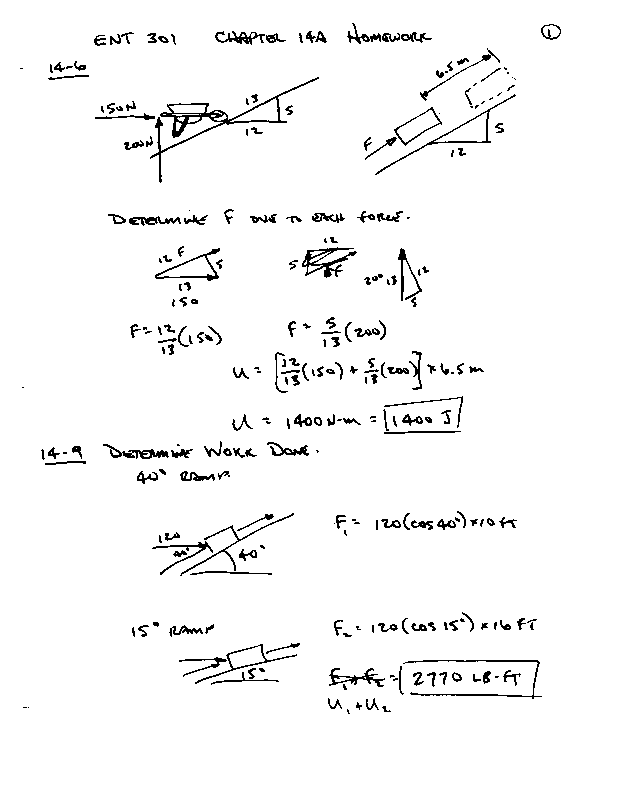 ENT 301 CHAPTER 14A HOMEWORK 1
14-6
150N
200N
13
5
12
6.5 m
F
5
12
DETERMINE F DUE TO EACH FORCE.
12 F
5
13
150
12
5
F
200 13
12
5
F = 12/13 (150)
F = 5/13 (200)
U = [12/13 (150) + 5/13 (200)] × 6.5 m
U = 1400 N-m = 1400 J
14-9 DETERMINE WORK DONE.
40° RAMP
120
40°
40°
F₁ = 120 (cos 40°) × 10 FT
15° RAMP
15°
F₂ = 120 (cos 15°) × 16 FT
F₁ + F₂ = 2770 LB-FT
U₁ + U₂